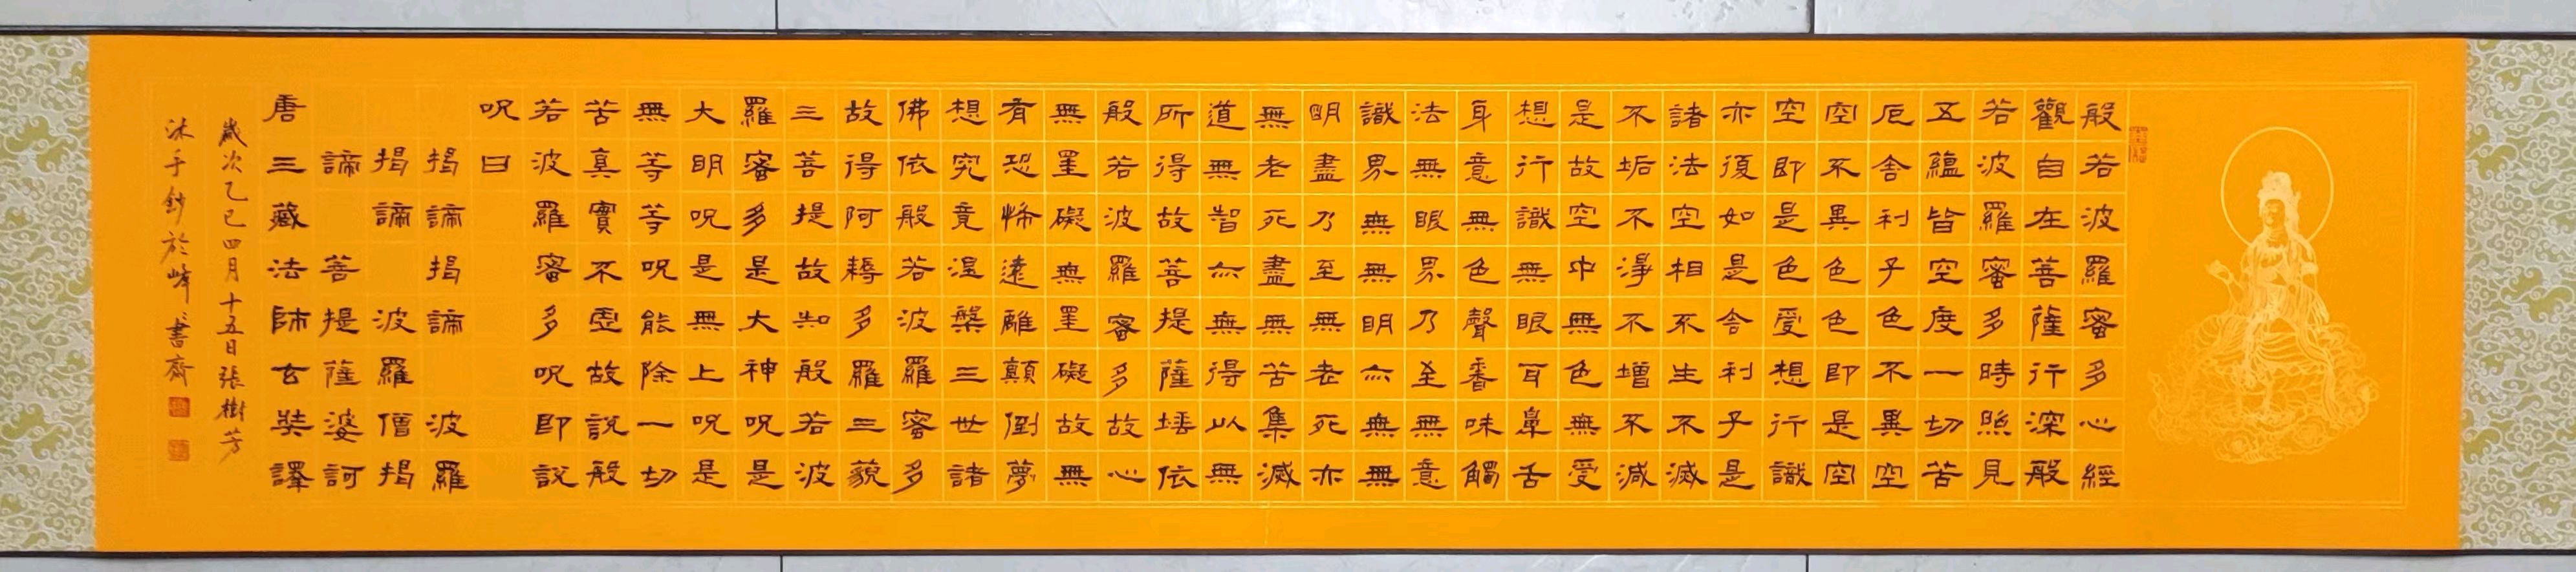 般若波羅蜜多心經
觀自在菩薩行深般
若波羅蜜多時照見
五蘊皆空度一切苦
厄舍利子色不異空
空不異色色即是空
空即是色受想行識
亦復如是舍利子是
諸法空相不生不滅
不垢不淨不增不減
是故空中無色無受
想行識無眼耳鼻舌
身意無色聲香味觸
法無眼界乃至無意
識界無無明亦無無
明盡乃至無老死亦
無老死盡無苦集滅
道無智亦無得以無
所得故菩提薩埵依
般若波羅蜜多故心
無罣礙無罣礙故無
有恐怖遠離顛倒夢
想究竟涅槃三世諸
佛依般若波羅蜜多
故得阿耨多羅三藐
三菩提故知般若波
羅蜜多是大神呪是
大明呪是無上呪是
無等等呪能除一切
苦真實不虛故說般
若波羅蜜多呪即說
呪曰
揭諦揭諦 波羅
揭諦 波羅僧揭
諦 菩提薩婆訶
唐三藏法師玄奘譯
歲次乙巳四月十五日張樹芳
沐手鈔於峰書齋